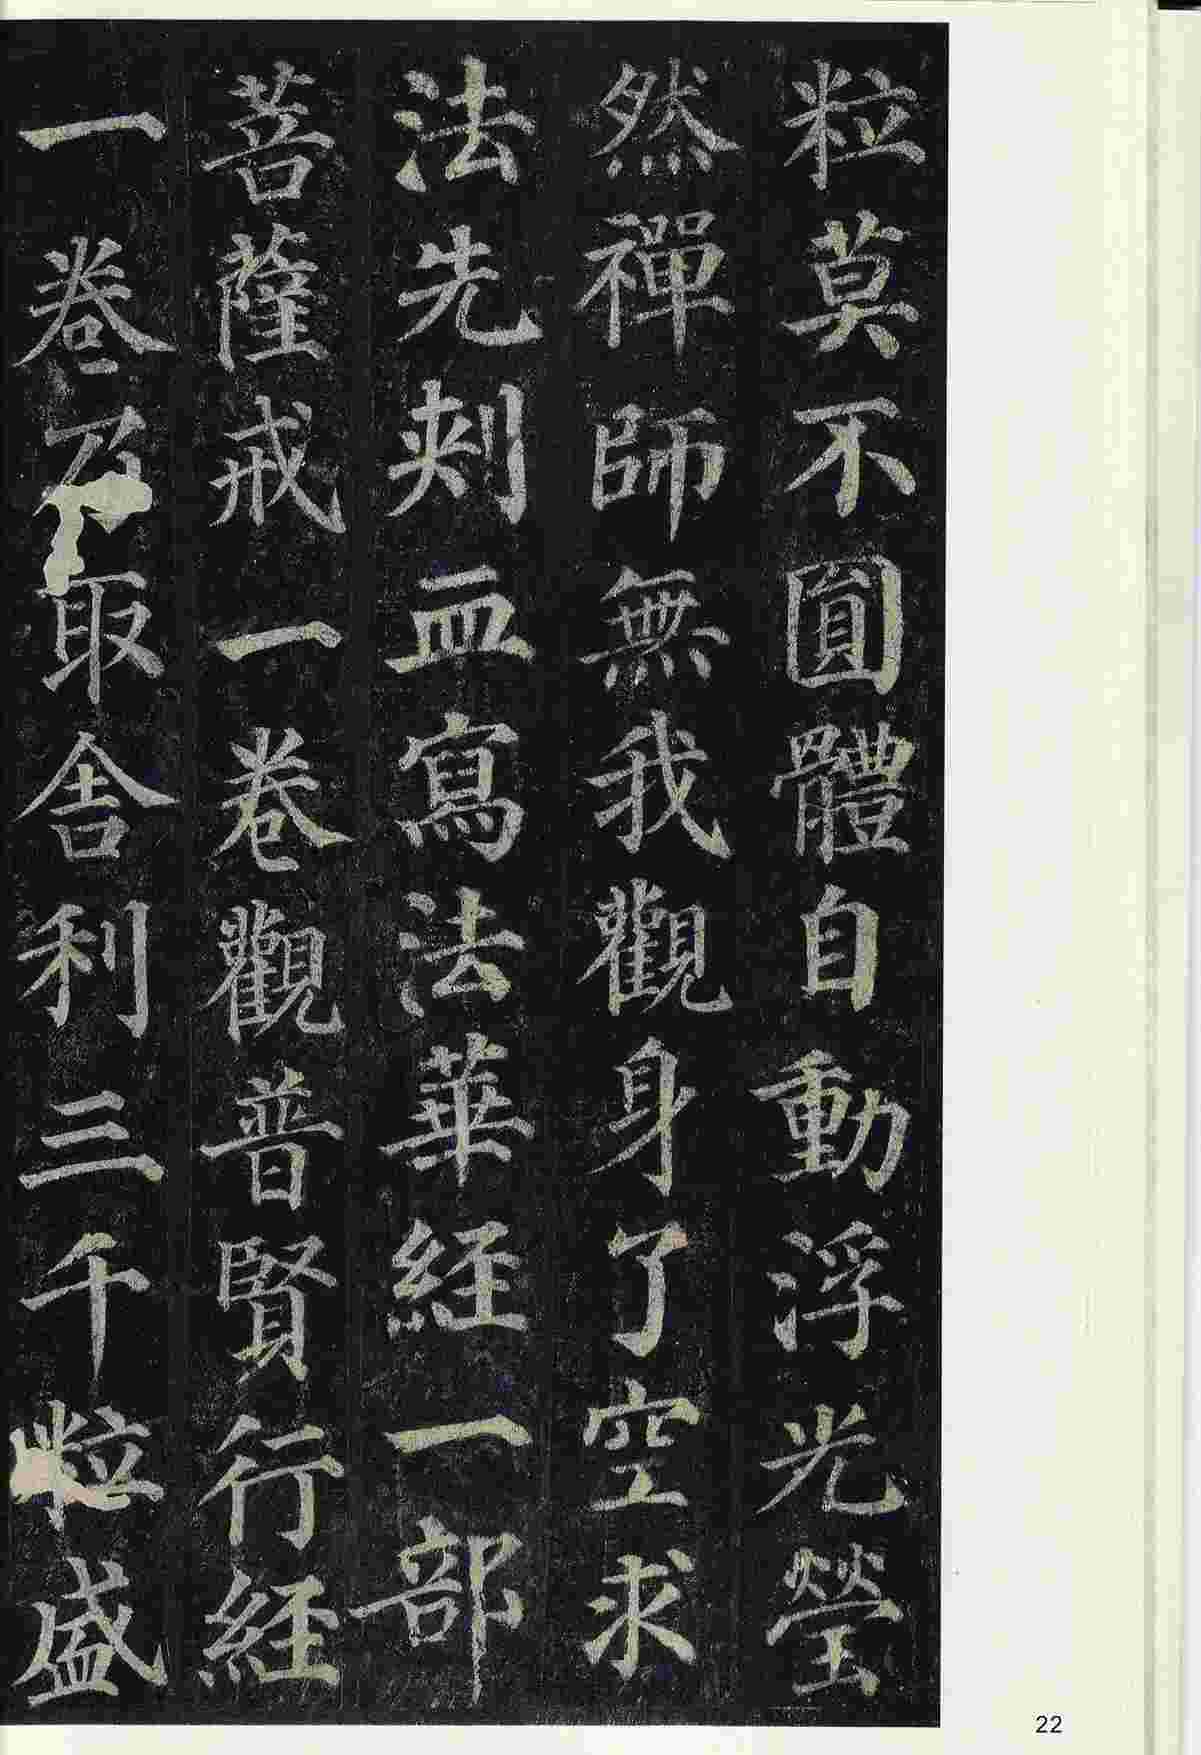 粒莫不圓體自動浮光瑩
然禪師無我觀身了空求
法先刾血寫法華経一部
菩薩戒一卷觀普賢行経
一卷乃取舍利三千粒盛
22